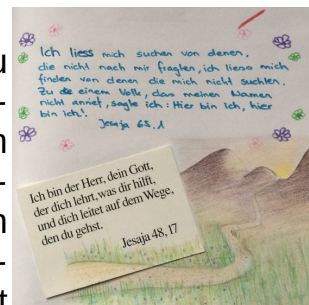 u
-
n
-
n
-
t
Ich liess mich suchen von denen,
die nicht nach mir fragten, ich liess mich
finden von denen die mich nicht suchten.
Zu de einem Volk, das meinen Namen
nicht anrief, sagte ich: Hier bin ich, hier
bin ich!
Jesaja 65.1
Ich bin der Herr, dein Gott,
der dich lehrt, was dir hilft,
und dich leitet auf dem Wege,
den du gehst.
Jesaja 48,17